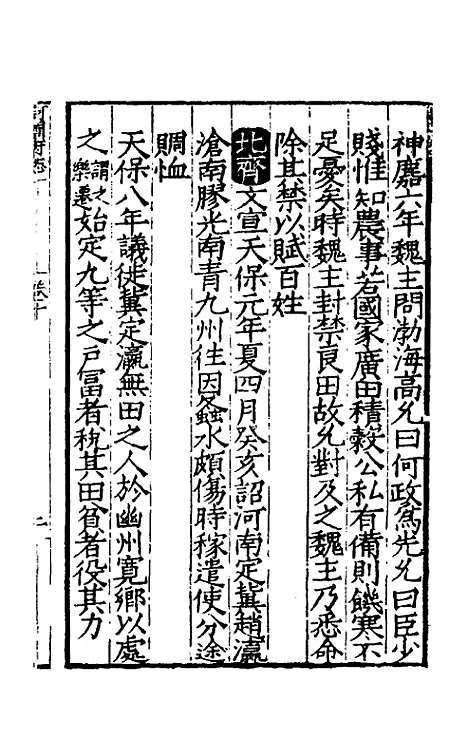 神䴥六年魏主問勃海高允曰何政爲先允曰臣少
賤惟知農事若國家廣田積穀公私有備則饑寒不
足憂矣時魏主封禁良田故允對及之魏主乃悉命
除其禁以賦百姓
北齊文宣天保元年夏四月癸亥詔河南定冀趙瀛
滄南膠光南青九州往因螽水頗傷時稼遣使分途
賙恤
天保八年議徙冀定瀛無田之人於幽州寬鄉以處
之謂之樂遷始定九等之戶富者稅其田貧者役其力
卷十
二